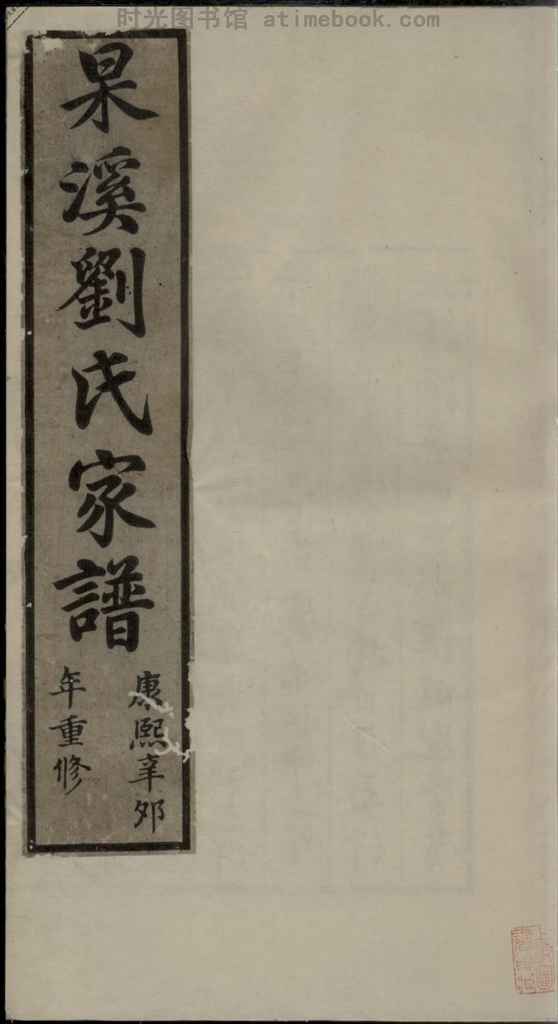 时光图书馆 atimebook.com
杲溪劉氏家譜
康熙辛夘
年重修